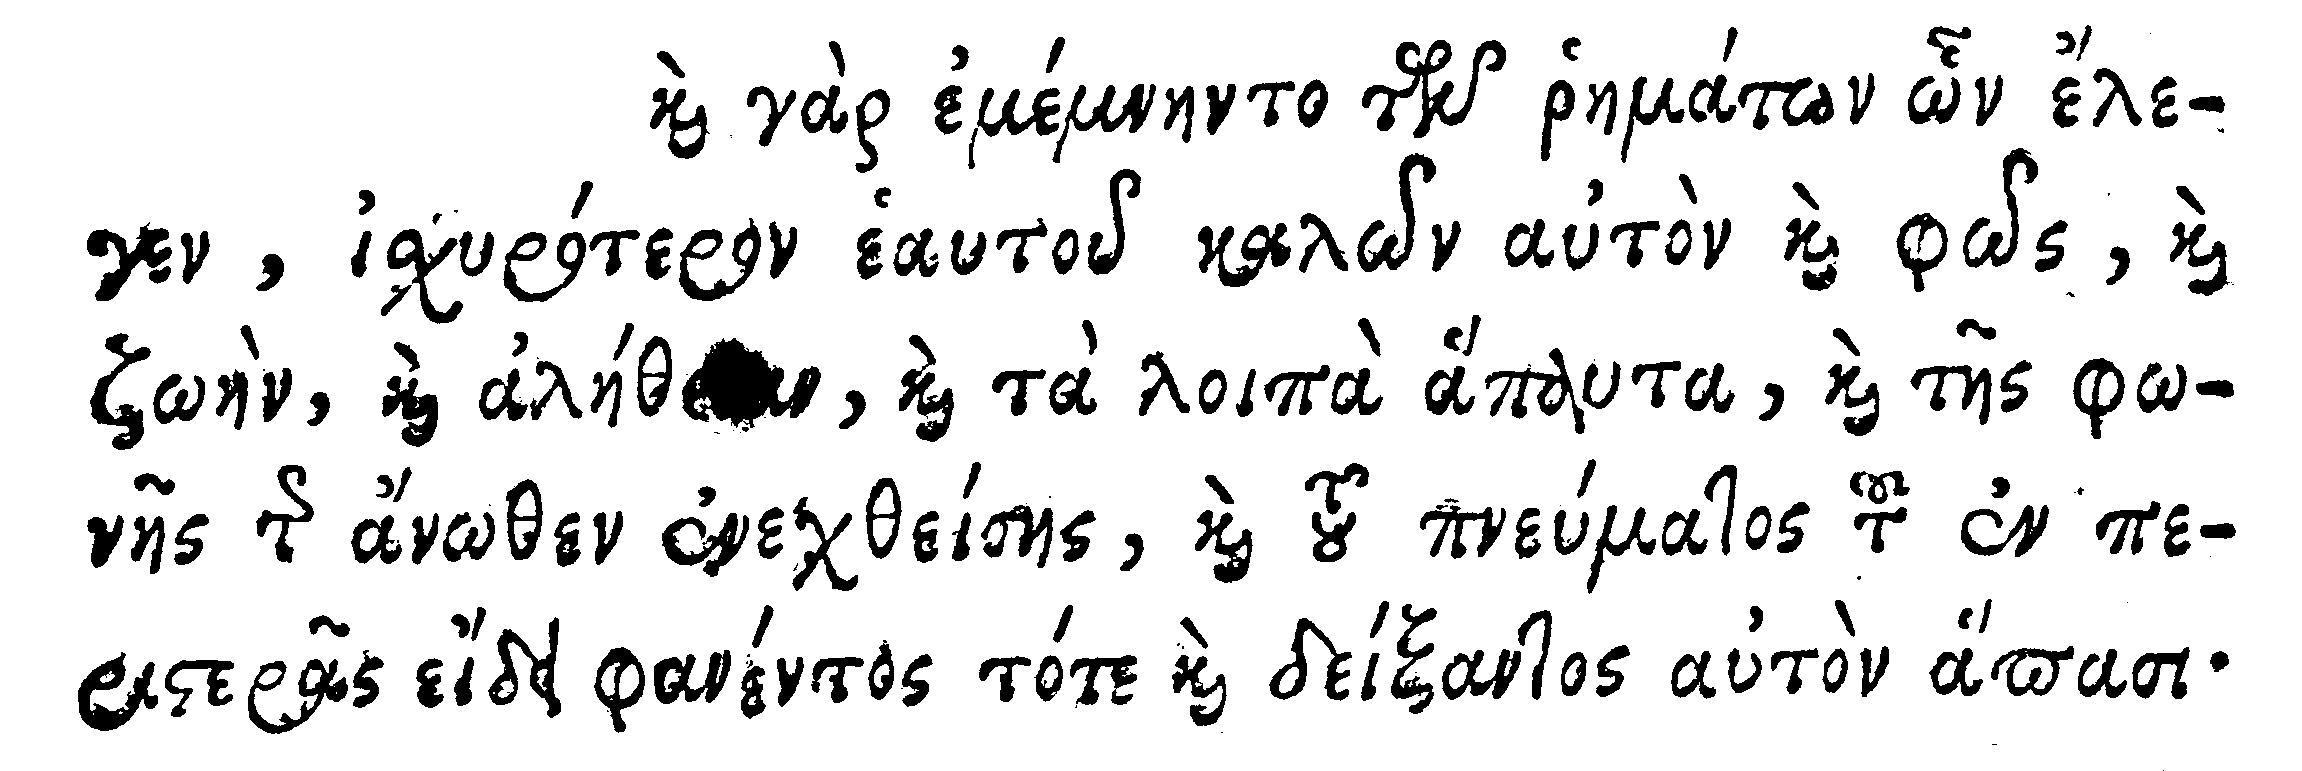 καὶ γὰρ ἐμέμνηντο τῶν ῥημάτων ὧν ἔλε-
γεν, ἰσχυρότερον ἑαυτοῦ καλῶν αὐτὸν καὶ φῶς, καὶ
ζωὴν, καὶ ἀλήθειαν, καὶ τὰ λοιπὰ ἅπαντα, καὶ τῆς φω-
νῆς τῆς ἄνωθεν ἐνεχθείσης, καὶ τοῦ πνεύματος τοῦ ἐν πε-
ριστερᾶς εἴδει φανέντος τότε καὶ δείξαντος αὐτὸν ἅπασι·